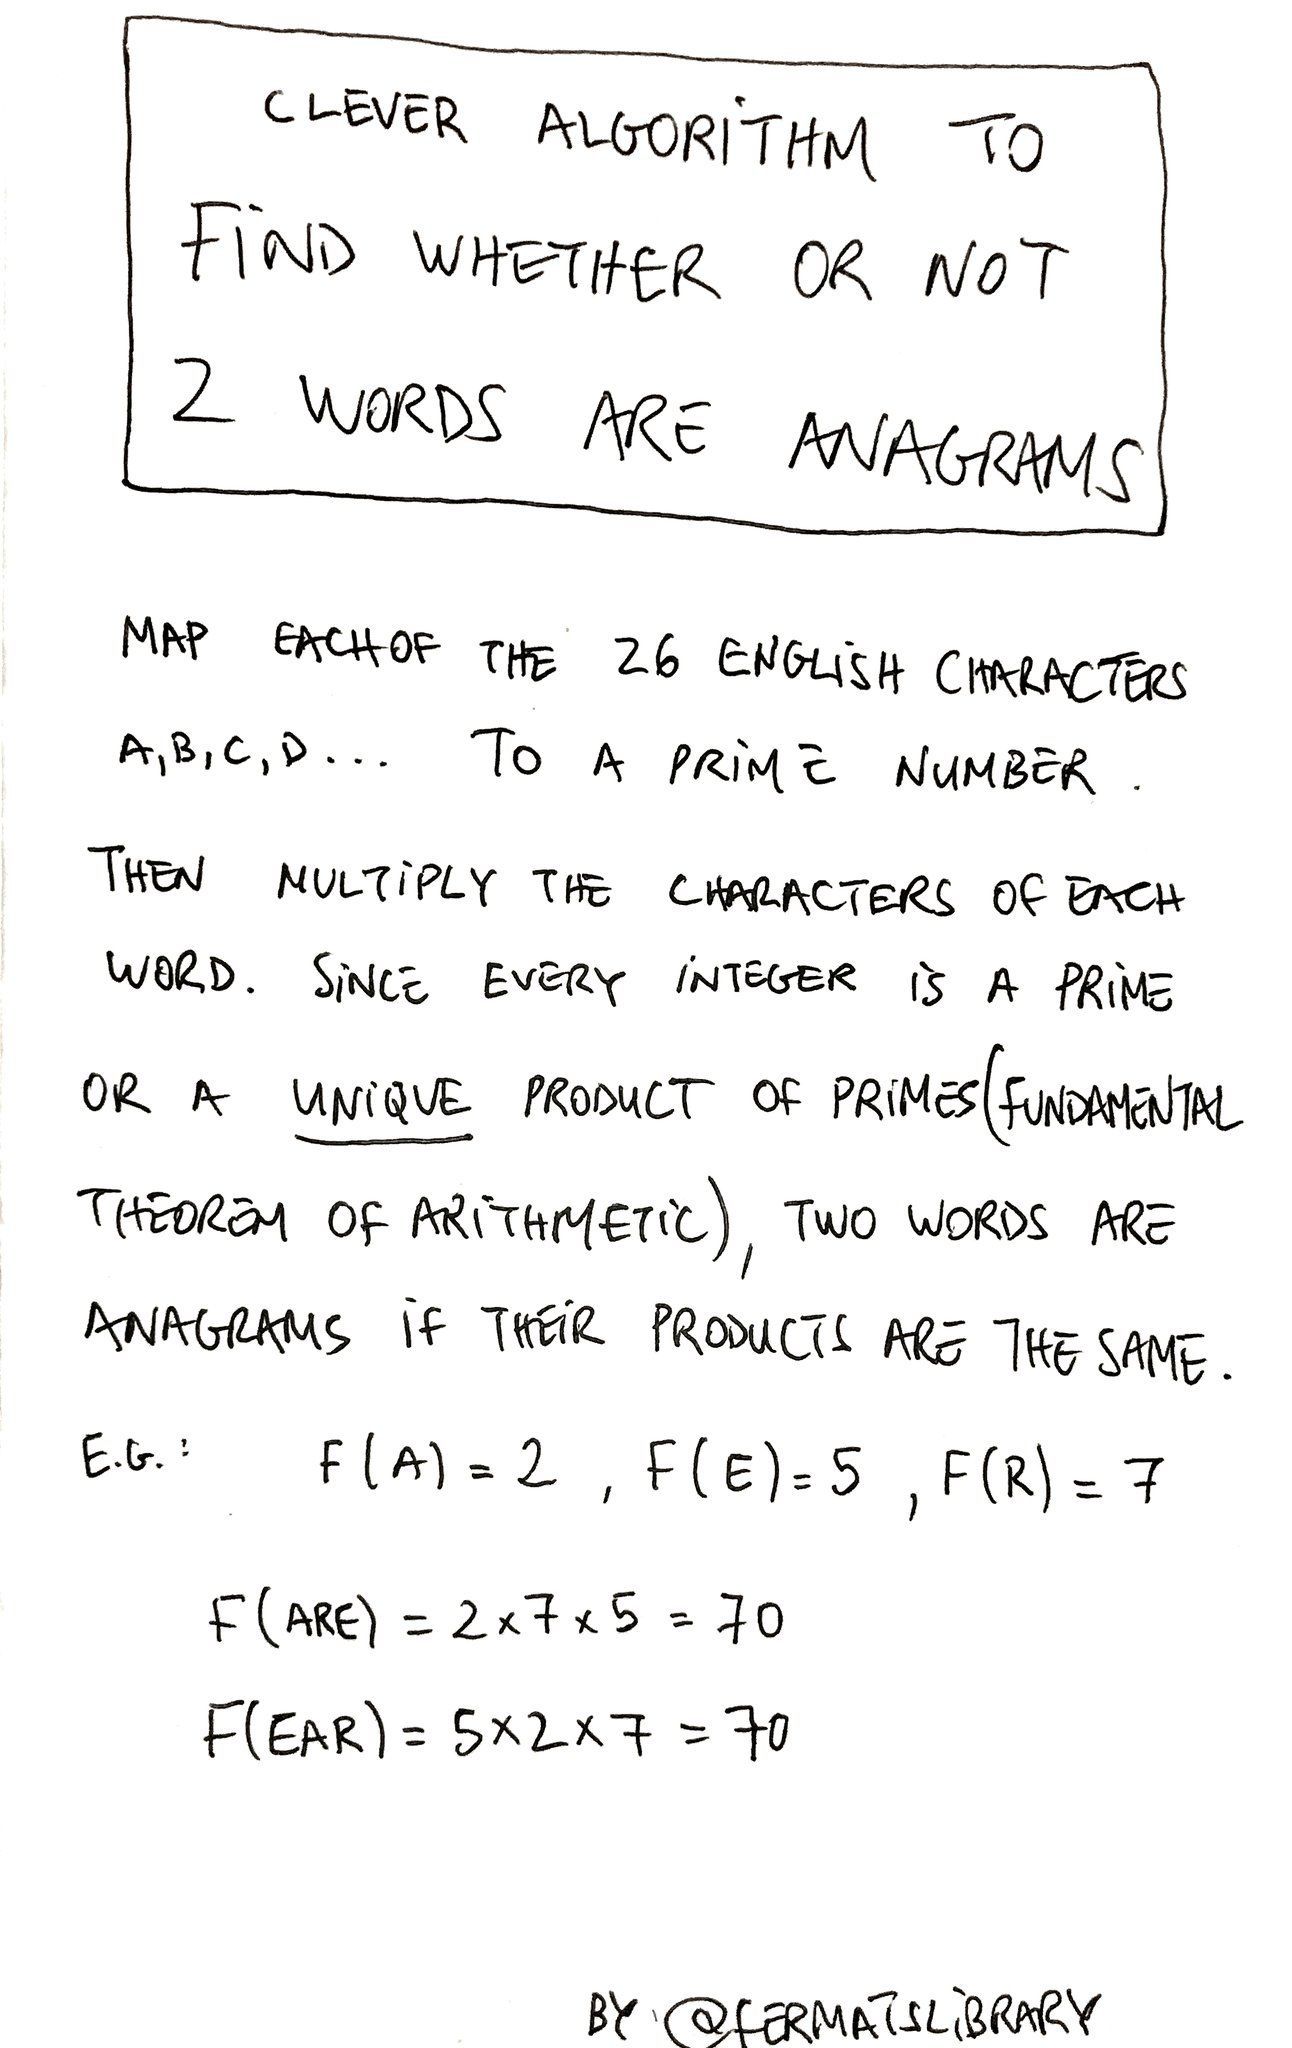 CLEVER ALGORiTHM TO
FiND WHETHER OR NOT
2 WORDS ARE ANAGRAMS
MAP EACH OF THE 26 ENGLiSH CHARACTERS
A, B, C, D... TO A PRiME NUMBER.
THEN MULTiPLY THE CHARACTERS OF EACH
WORD. SiNCE EVERY iNTEGER iS A PRiME
OR A UNiQUE PRODUCT OF PRiMES (FUNDAMENTAL
THEOREM OF ARiTHMETiC), TWO WORDS ARE
ANAGRAMS iF THEiR PRODUCTS ARE THE SAME.
E.G.: F(A) = 2 , F(E) = 5 , F(R) = 7
F(ARE) = 2 x 7 x 5 = 70
F(EAR) = 5 x 2 x 7 = 70
BY @FERMATSLiBRARY